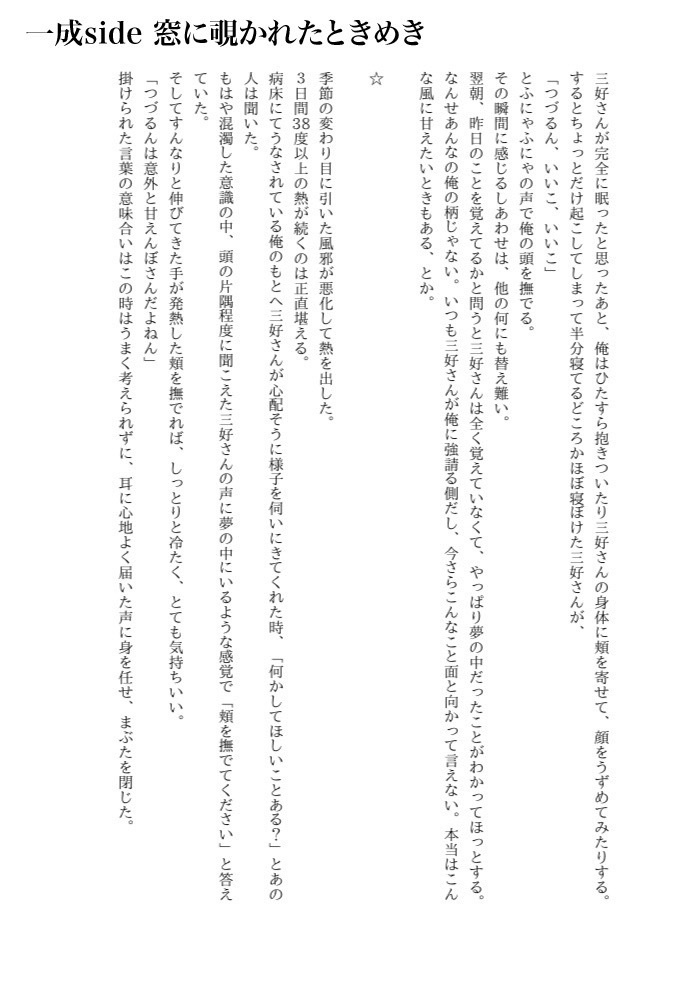 一成side 窓に覗かれたときめき
三好さんが完全に眠ったと思ったあと、俺はひたすら抱きついたり三好さんの身体に頬を寄せて、顔をうずめてみたりする。
するとちょっとだけ起こしてしまって半分寝てるどころかほぼ寝ぼけた三好さんが、
「つづるん、いいこ、いいこ」
とふにゃふにゃの声で俺の頭を撫でる。
その瞬間に感じるしあわせは、他の何にも替え難い。
翌朝、昨日のことを覚えてるかと問うと三好さんは全く覚えていなくて、やっぱり夢の中だったことがわかってほっとする。
なんせあんなの俺の柄じゃない。いつも三好さんが俺に強請る側だし、今さらこんなこと面と向かって言えない。本当はこん
な風に甘えたいときもある、とか。
☆
季節の変わり目に引いた風邪が悪化して熱を出した。
3日間38度以上の熱が続くのは正直堪える。
病床にてうなされている俺のもとへ三好さんが心配そうに様子を伺いにきてくれた時、「何かしてほしいことある?」とあの
人は聞いた。
もはや混濁した意識の中、頭の片隅程度に聞こえた三好さんの声に夢の中にいるような感覚で「頬を撫でてください」と答え
ていた。
そしてすんなりと伸びてきた手が発熱した頬を撫でれば、しっとりと冷たく、とても気持ちいい。
「つづるんは意外と甘えんぼさんだよねん」
掛けられた言葉の意味合いはこの時はうまく考えられずに、耳に心地よく届いた声に身を任せ、まぶたを閉じた。